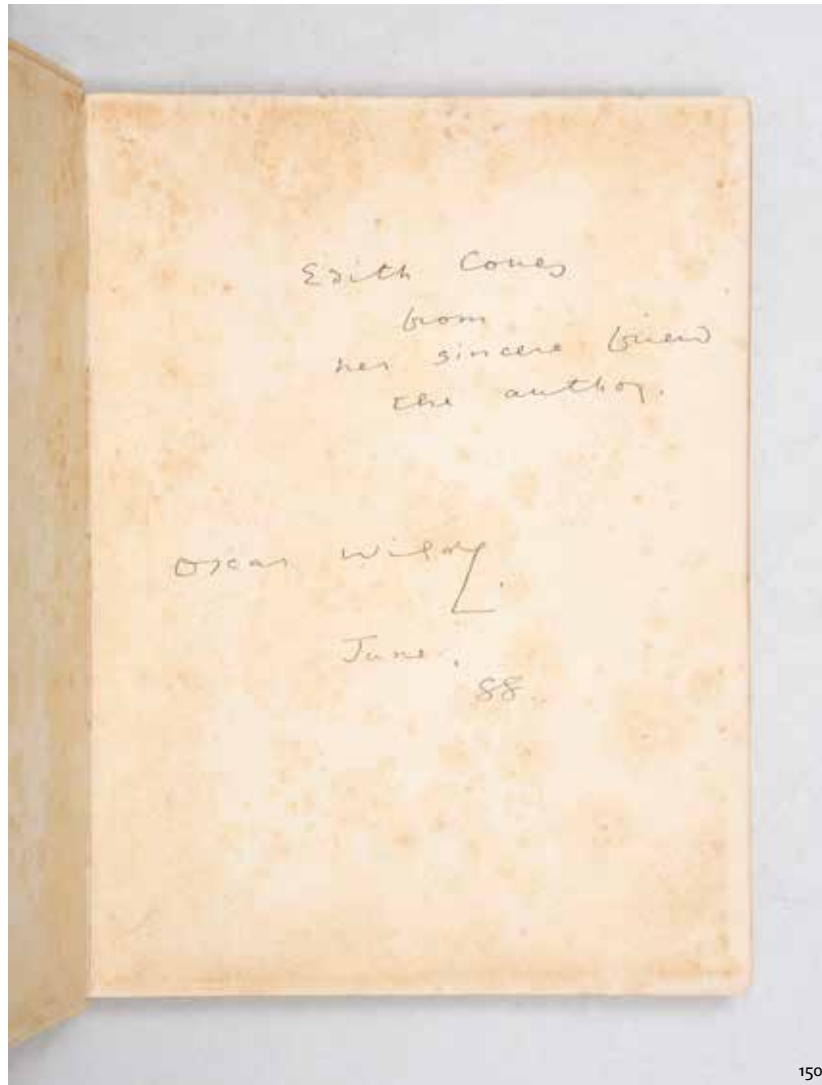 Edith Coues
from
her sincere friend
the author.
Oscar Wilde.
June.
88.
150